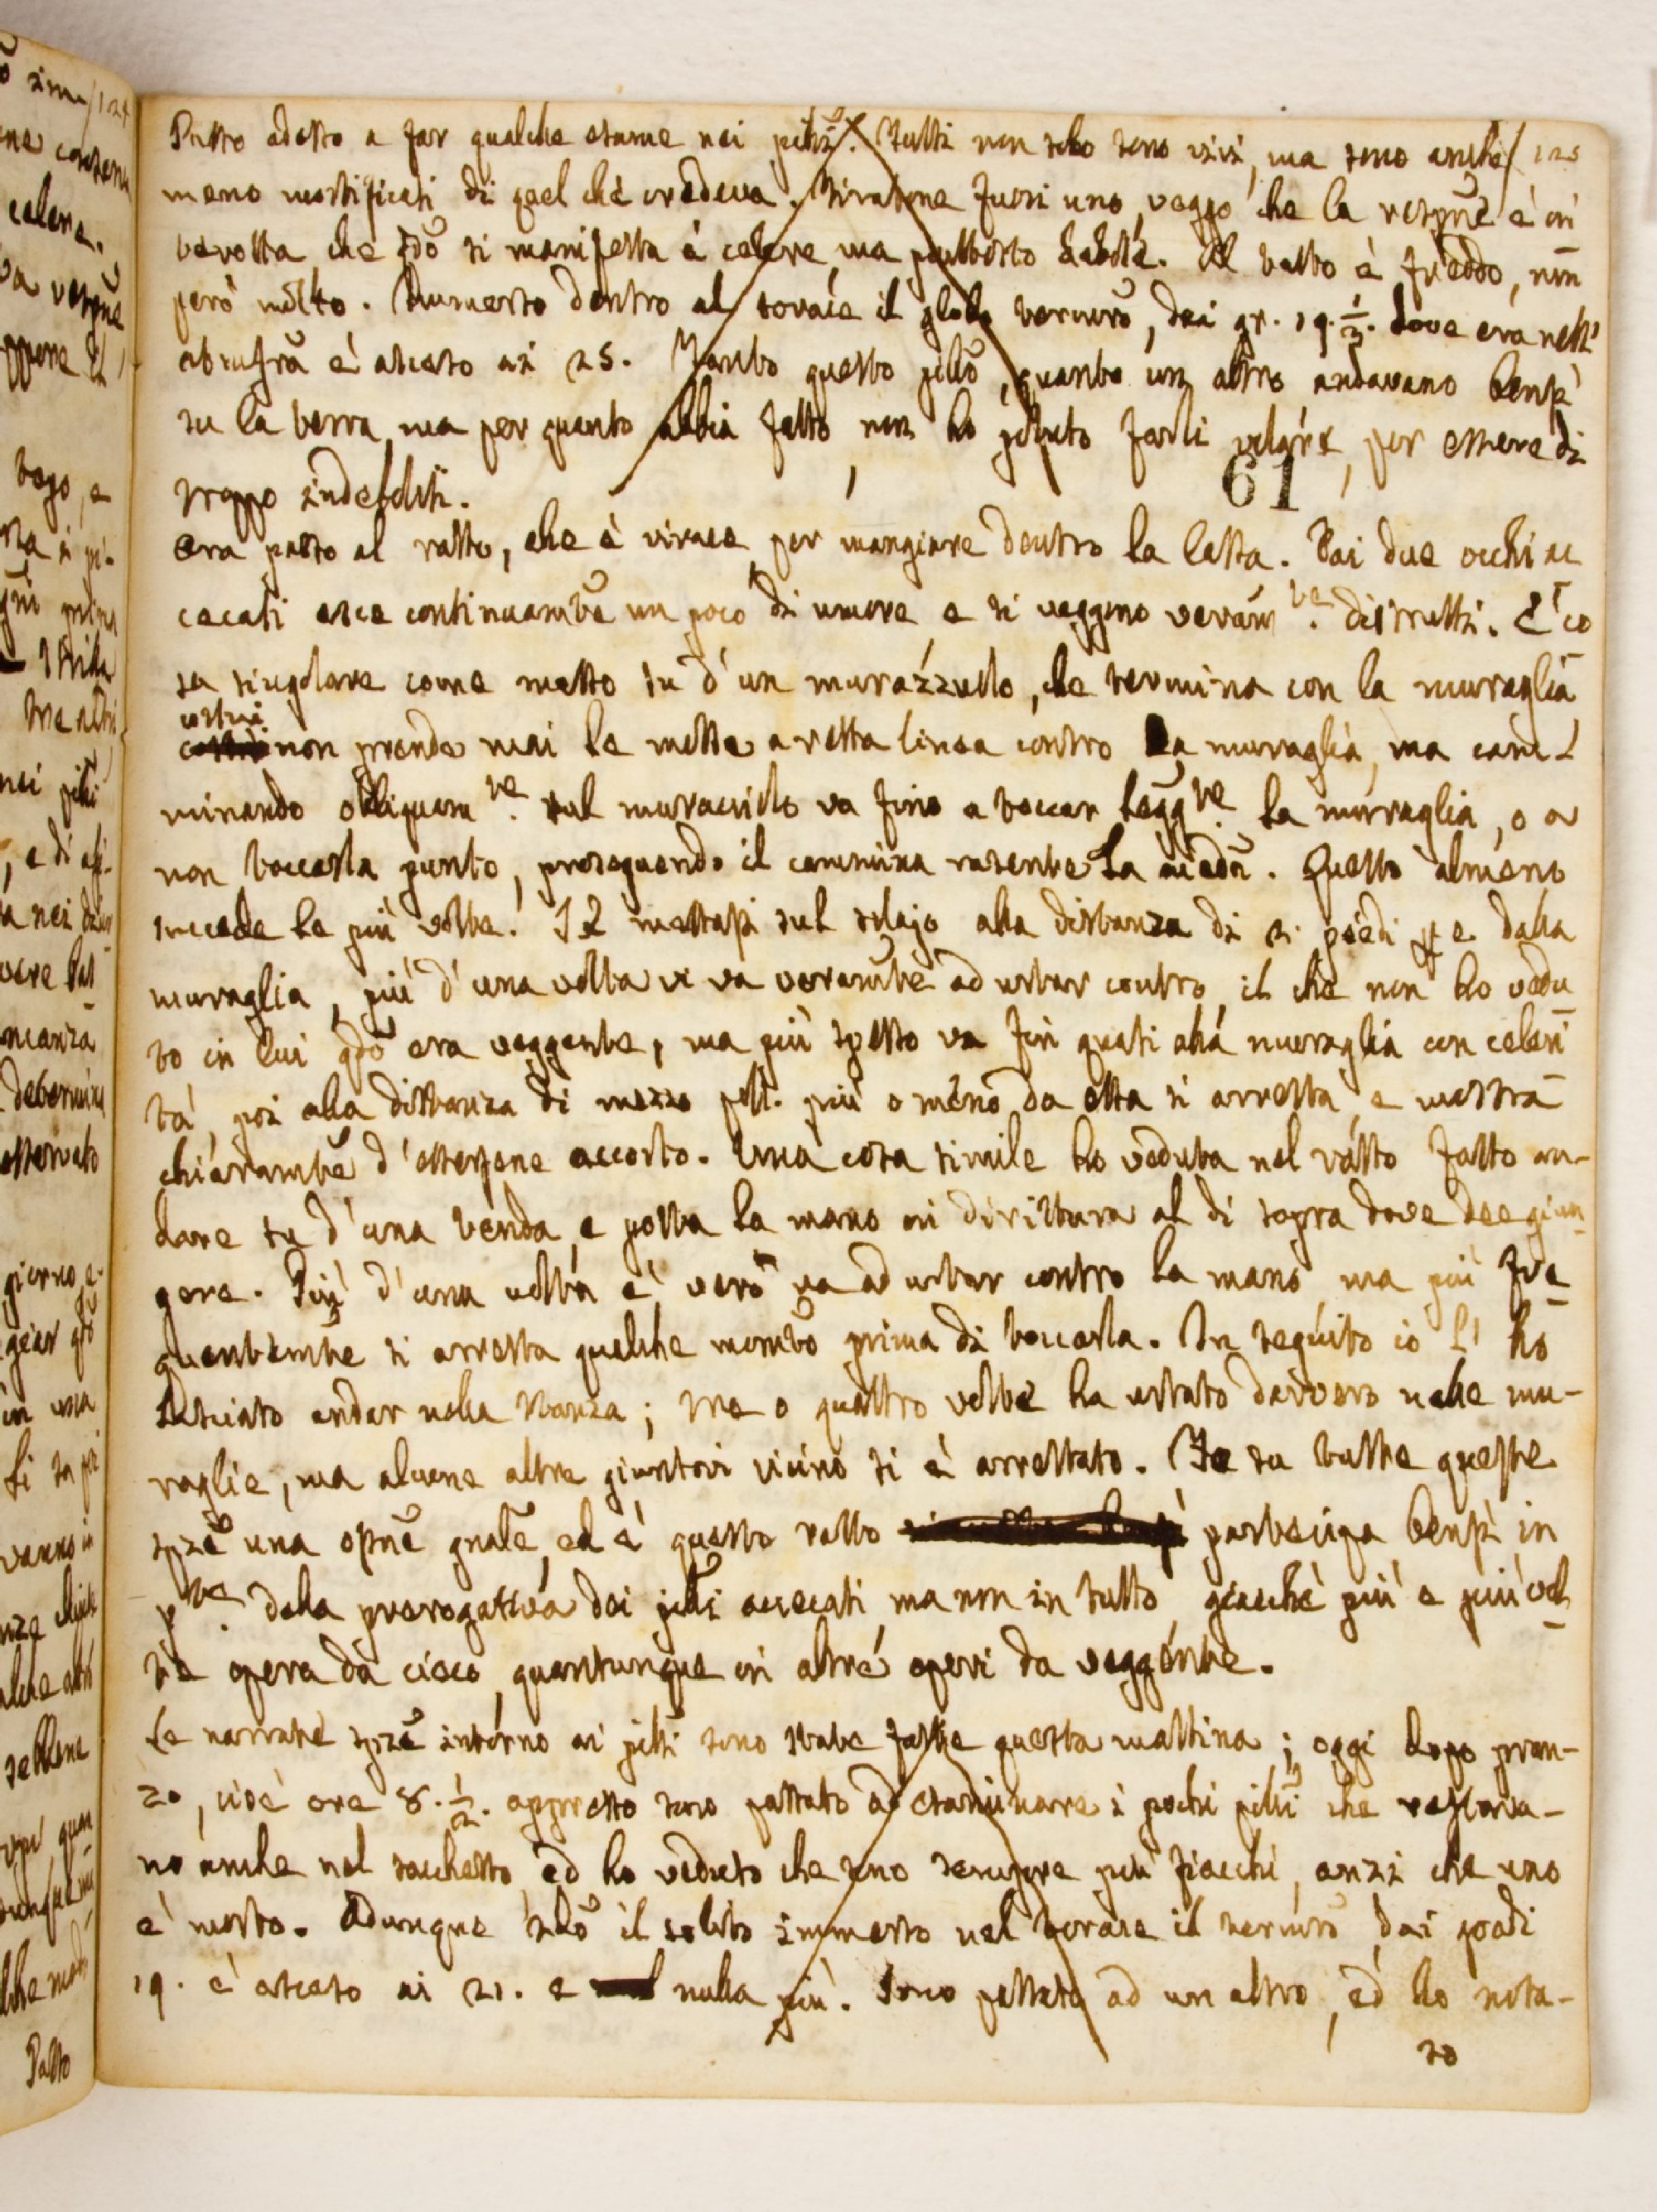 Passo adesso a far qualche esame nei pilli. Tutti non solo sono vivi, ma sono anche / 125
meno mortificati di quel che credeva. Tiratone fuori uno, veggo che la respne è in
terrotta, che qdo si manifesta è celere, ma piuttosto debole. Al tatto è freddo, non
però molto. Immerso dentro al torace il globo termro, dai gr. 19. 1/2. dove era nell'
atmosfra è asceso ai 25. Tanto questo pillo, quanto un altro andavano bensì
su la terra, ma per quanto abbia fatto, non ho potuto farli volare, per essere di
61
troppo indeboliti.
Ora passo al ratto, che è vivace, per mangiare dentro la cassa. Dai due occhi ac
cecati esce continuamte un poco di umore e si veggono veramte. distrutti. È co
sa singolare come messo su d'un murazzuolo, che termina con la muraglia
costui
non prende mai le mosse a retta linea contro la muraglia, ma cam
minando obliquamte. sul muracciolo va fino a toccar leggte. la muraglia, o a
non toccarla punto, proseguendo il cammino rasente la medma. Questo almeno
succede le più volte. Se mettasi sul solajo alla distanza di 2. piedi pe dalla
muraglia, più d'una volta vi va veramte ad urtar contro, il che non ho vedu
to in lui qdo era veggente, ma più spesso va fin quasi alla muraglia con celeri
tà, poi alla distanza di mezzo poll. più o meno da essa si arresta, e mostra
chiaramte d'essersene accorto. Una cosa simile ho veduta nel ratto fatto an-
dare su d'una tenda, e posta la mano in dirittura al di sopra dove dee giun
gere. Più d'una volta è vero va ad urtar contro la mano, ma più fre
quentemte si arresta qualche momto prima di toccarla. In seguito io l'ho
lasciato andar nella stanza; tre o quattro volte ha urtato davvero nelle mu-
raglie, ma alcune altre giuntovi vicino si è arrestato. Fo su tutte queste
spze una opne gnale, ed è questo ratto partecipa bensì in
pte. della prerogativa dei pilli accecati, ma non in tutto, giacchè più e più vol
te opera da cieco, quantunque in altre operi da veggente.
Le narrate spze intorno ai pilli sono state fatte questa mattina; oggi dopo pran-
zo, cioè ore 8. 1/2. appresso sono passato ad esaminare i pochi pilli che restava-
no anche nel sacchetto, ed ho veduto che sono sempre più fiacchi, anzi che uno
è morto. Adunque sdo il solito immerso nel torace il termro, dai gradi
19. è asceso ai 21. e nulla più. Sono passato ad un altro, ed ho nota-
to